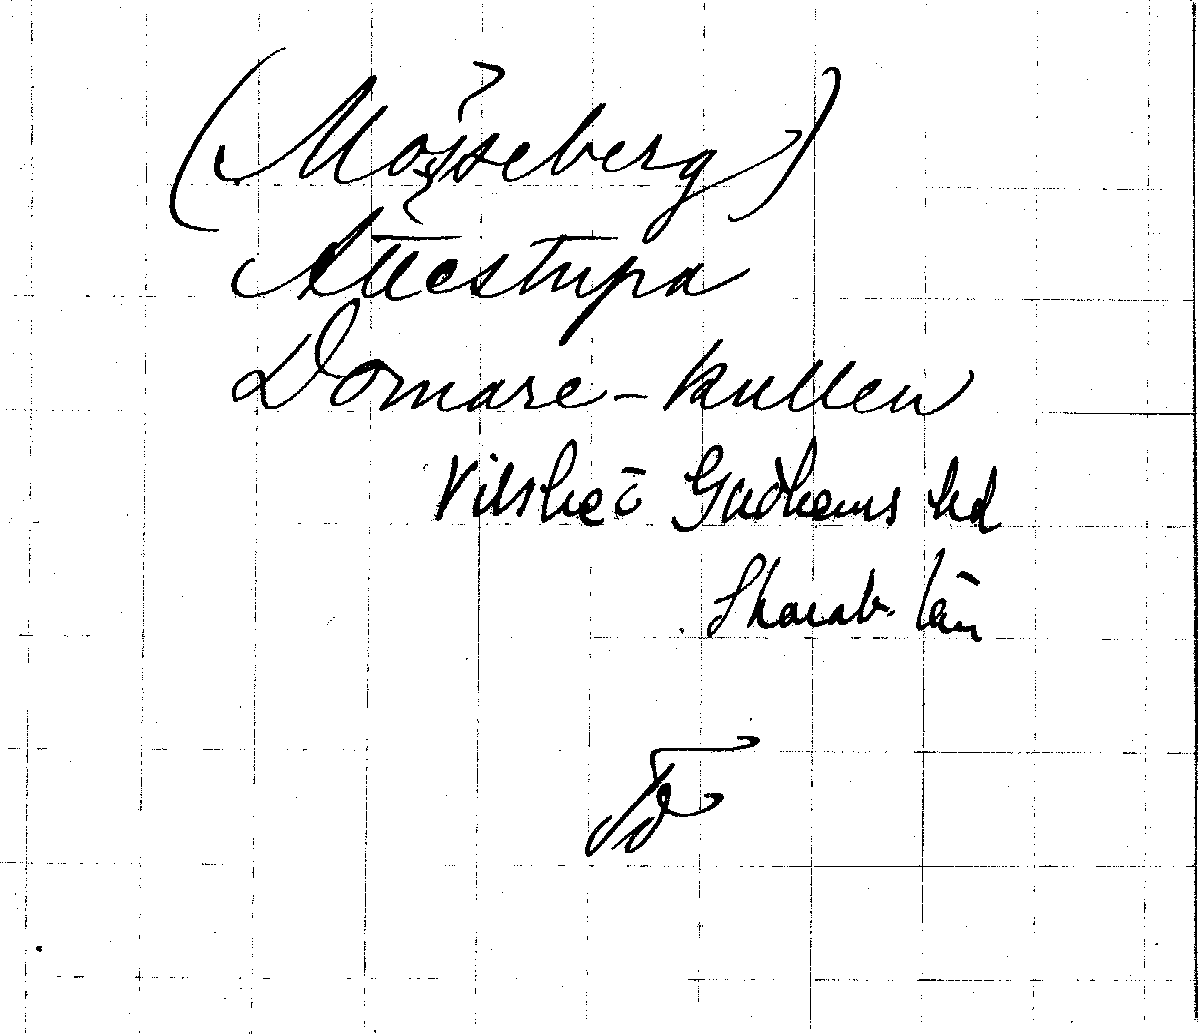 (Mösseberg)
Ättestupa
Domare-kullen
Vilske ö Gudhems hd
Skarab. län